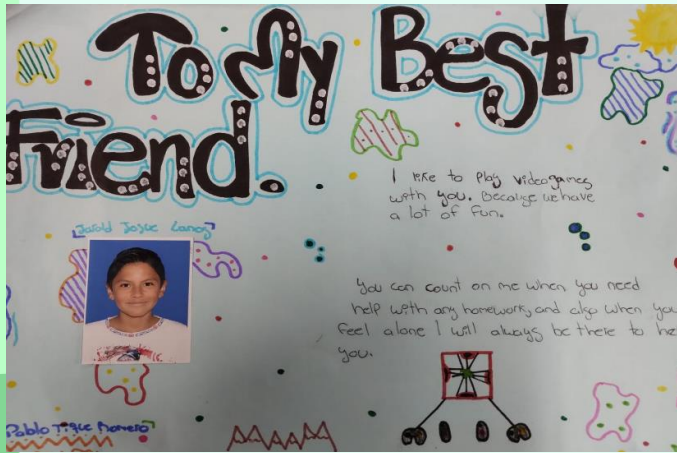 To My Best
Friend.
I like to play videogames
with you. Because we have
a lot of fun.
Jarold Josue Lanos
you can count on me when you need
help with any homework, and also when you
feel alone I will always be there to he
you.
Pablo Tique Romero